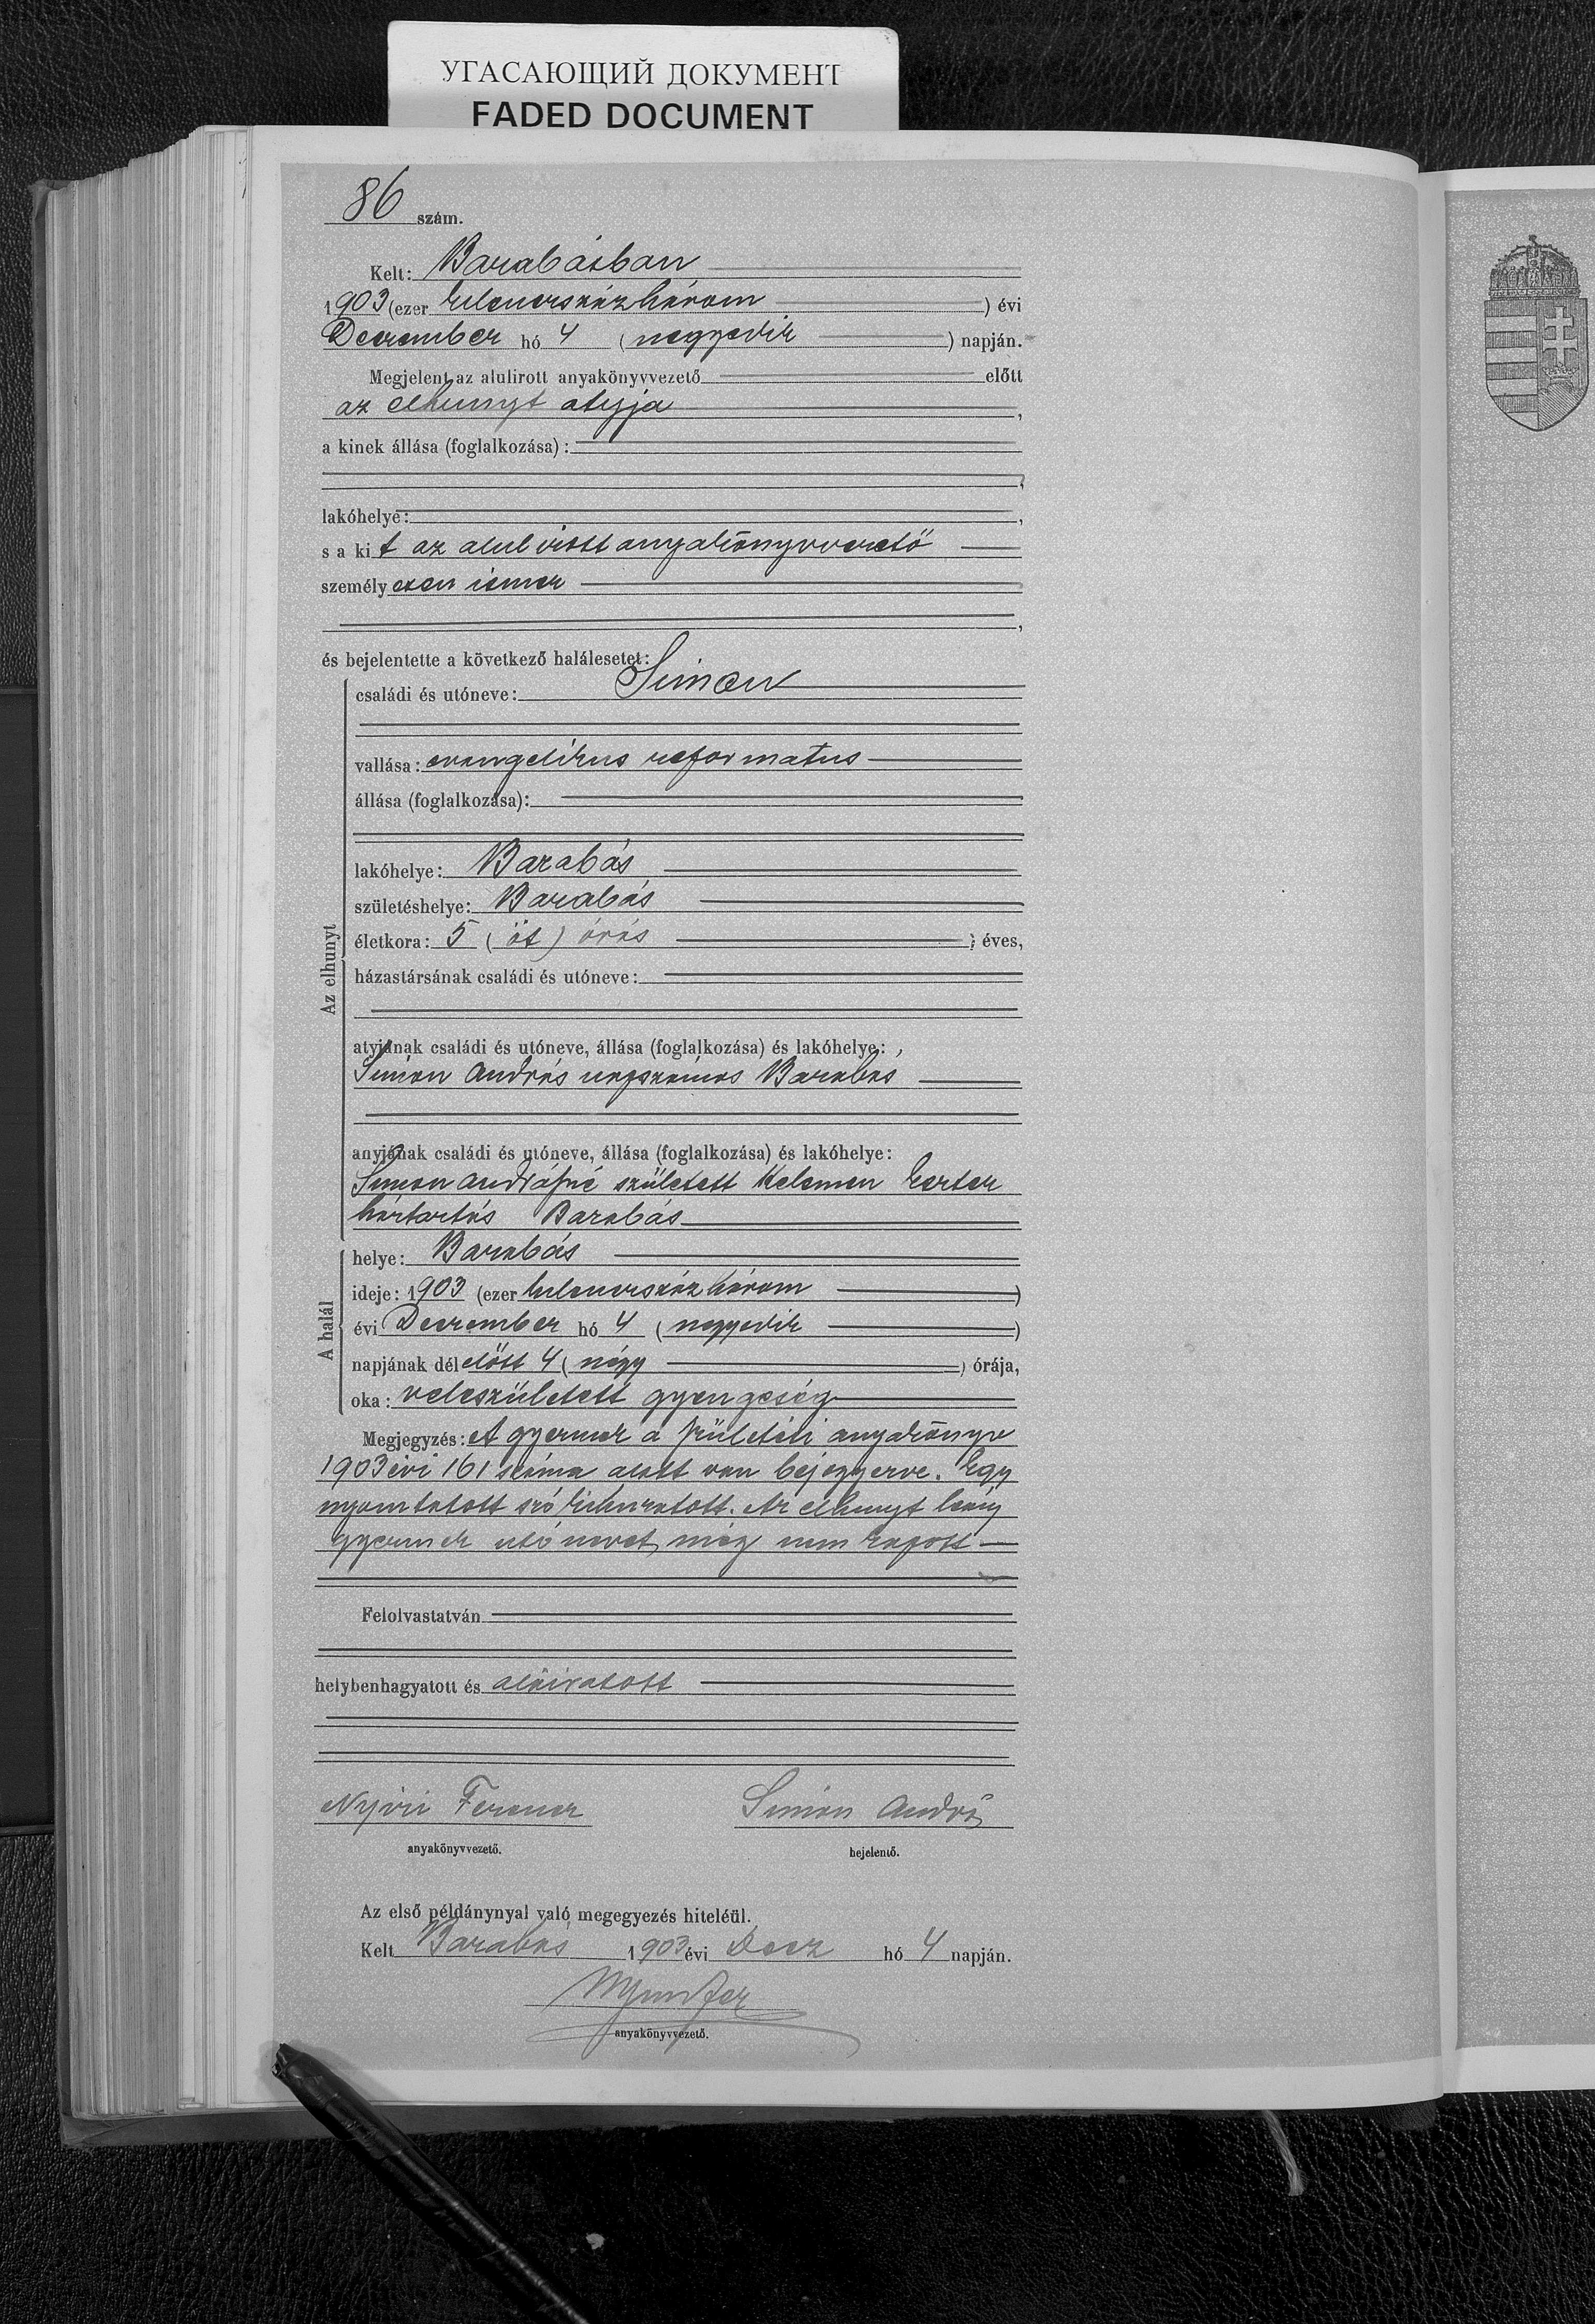 УГАСАЮЩИЙ ДОКУМЕНТ
FADED DOCUMENT
86 szám.
Kelt: Barabásban
1903 (ezer kilencszázhárom ) évi
December hó 4 ( negyedik ) napján.
Megjelent az alulirott anyakönyvvezető előtt
az elhunyt atyja ,
a kinek állása (foglalkozása) :
,
lakóhelye: ,
s a kit az alulirott anyakönyvvezető
személyesen ismer
,
és bejelentette a következő halálesetet:
Az elhunyt
családi és utóneve: Simon
vallása: evangelikus reformatus
állása (foglalkozása):
lakóhelye: Barabás
születéshelye: Barabás
életkora: 5 ( öt ) órás ; éves,
házastársának családi és utóneve:
atyjának családi és utóneve, állása (foglalkozása) és lakóhelye:
Simon András napszámos Barabás
anyjának családi és utóneve, állása (foglalkozása) és lakóhelye:
Simon Andrásné született Kelemen Eszter
háztartás Barabás
A halál
helye: Barabás
ideje: 1903 (ezer kilencszázhárom )
évi December hó 4 ( negyedik )
napjának dél előtt 4 ( négy ) órája,
oka: veleszületett gyengeség
Megjegyzés: A gyermek a születési anyakönyv
1903 évi 161 száma alatt van bejegyezve. Egy
nyomtatott szó kihuzatott. Az elhunyt leány
gyermek utónevet még nem kapott
Felolvastatván
helybenhagyatott és aláiratott
Nyiri Ferencz Simon András
anyakönyvvezető. bejelentő.
Az első példánynyal való megegyezés hiteléül.
Kelt Barabás 1903 évi Decz hó 4 napján.
anyakönyvvezető.